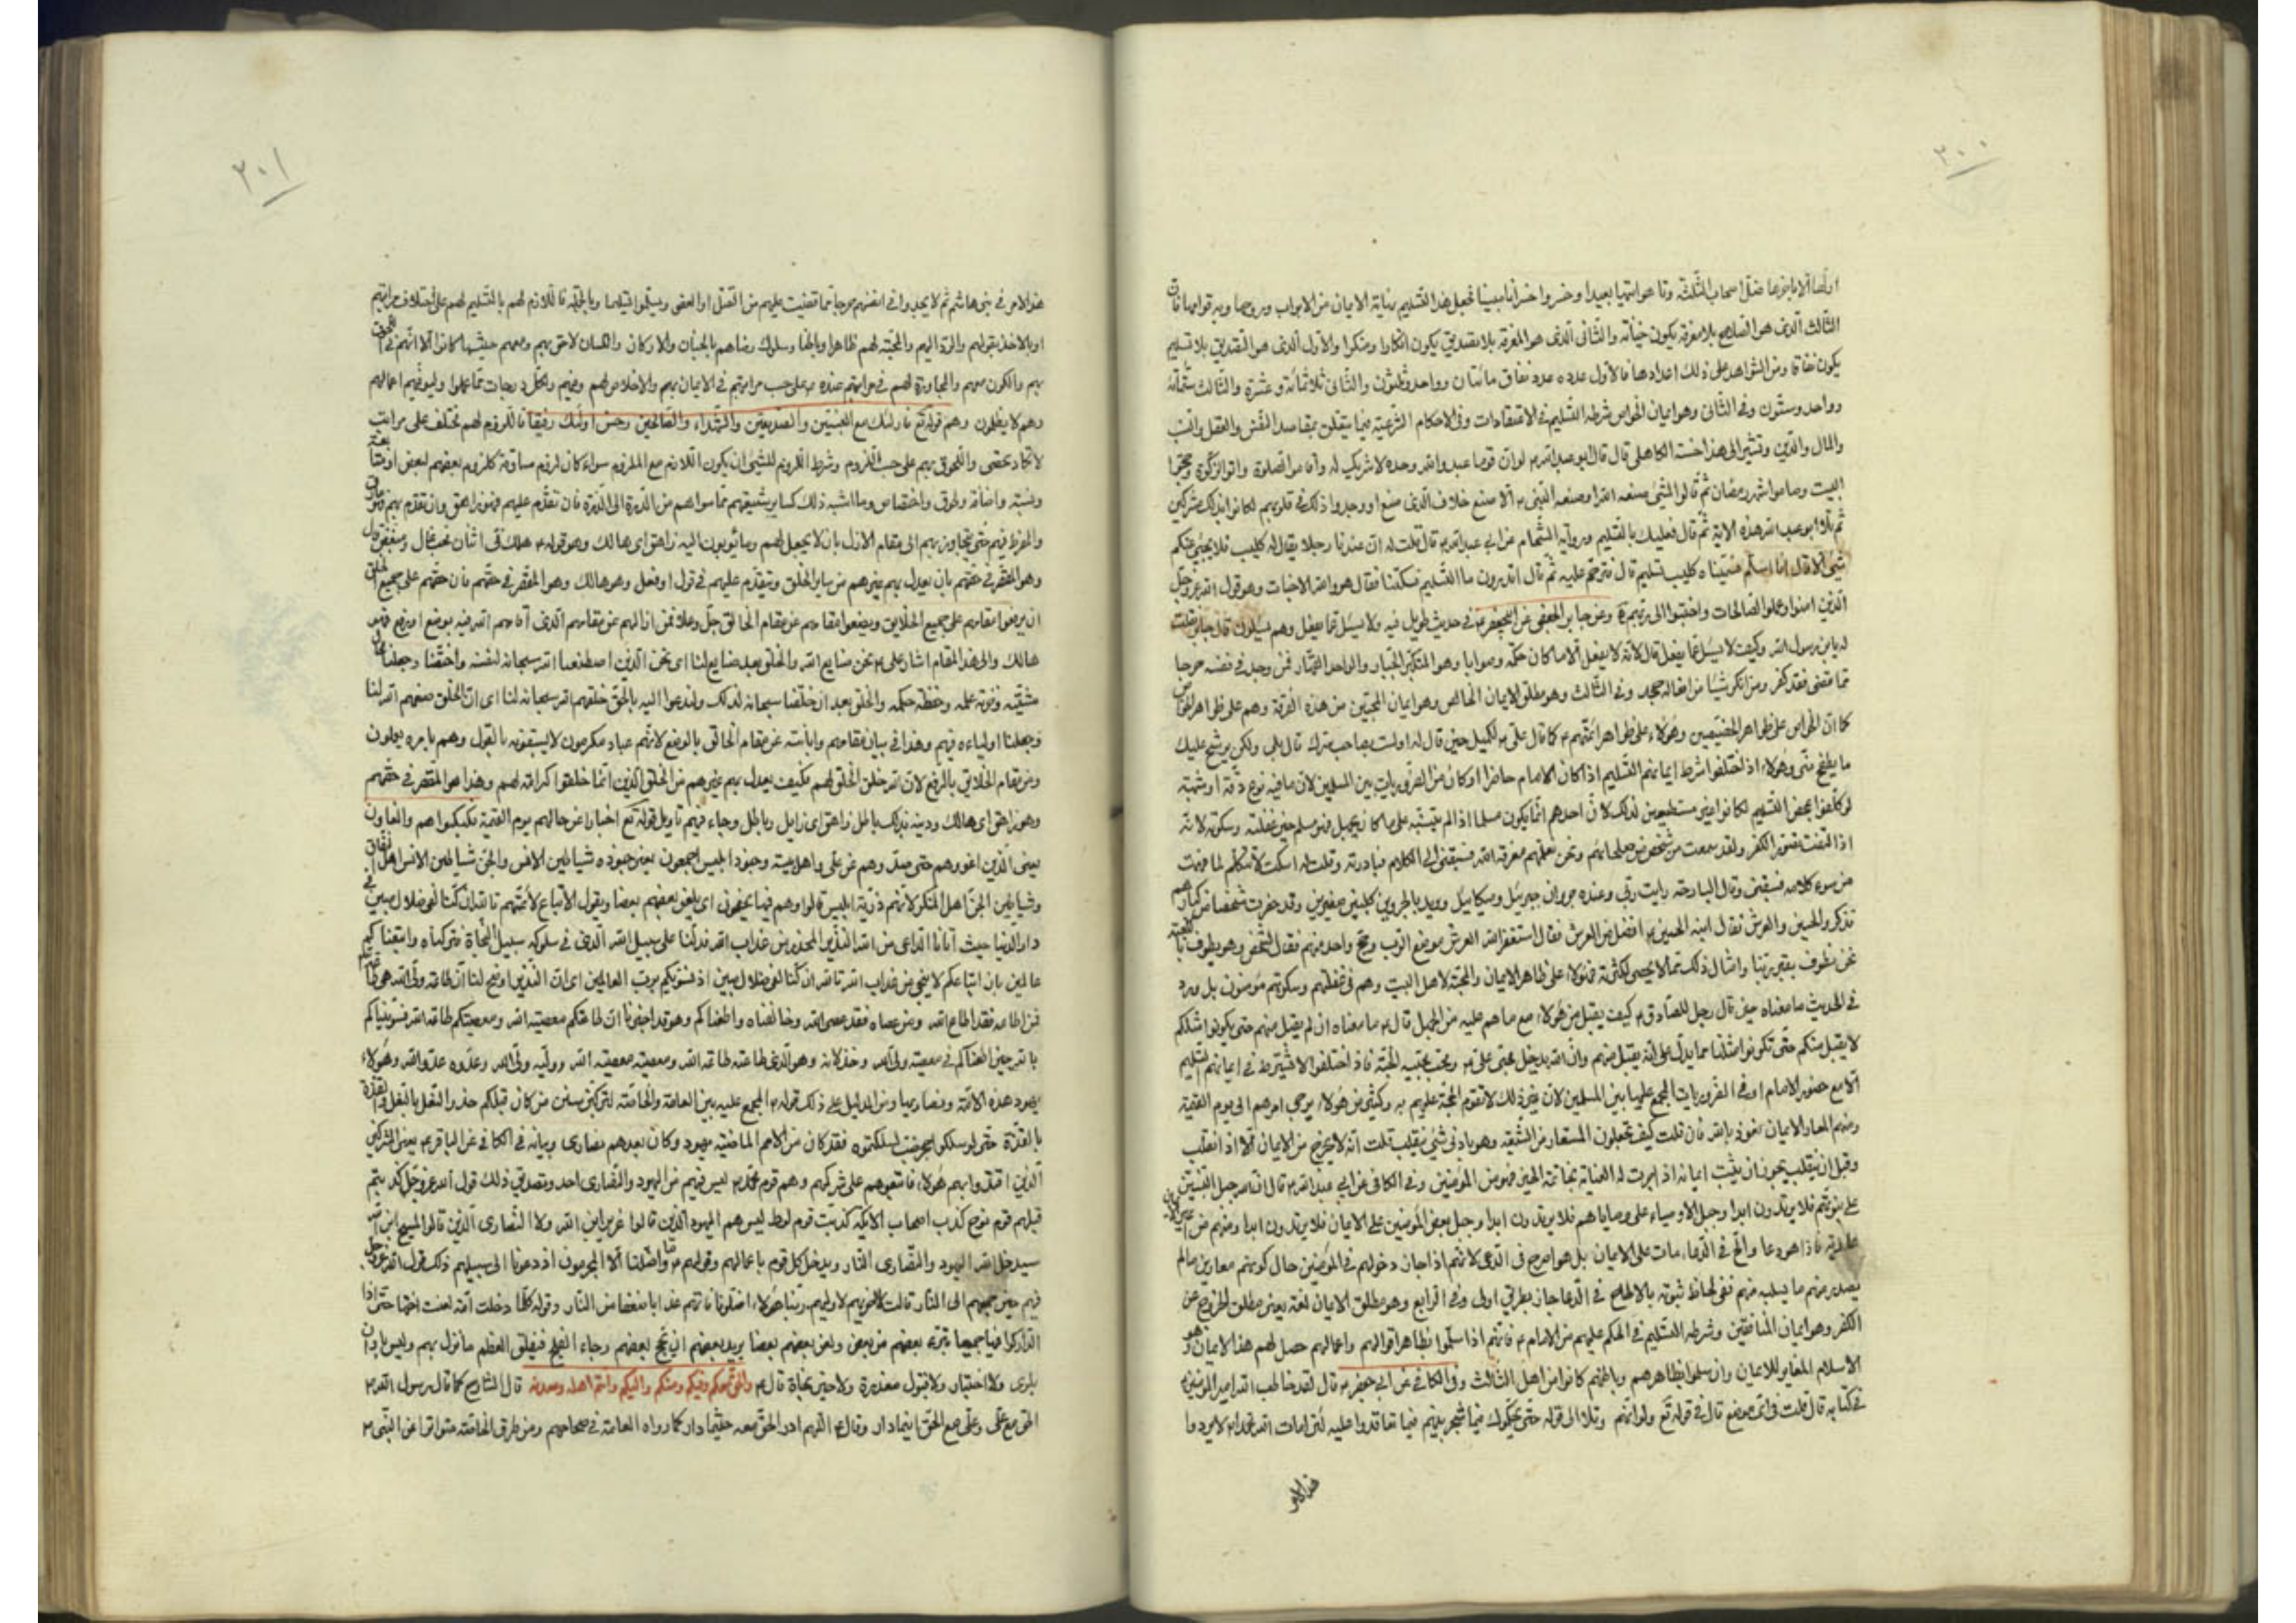 ٢٠٠
اولها الا باخرها ضل اصحاب الثلثة وتاهوا تيها بعيدا وخسروا خسرانا مبينا فجعل هذا التسليم نهاية الايمان من الابواب وروحها وبه قوامها فان
الثالث الذى هو الصلاح بلا معرفة يكون خيانة والثانى الذى هو المعرفة بلا تصديق يكون انكارا ومنكرا والاول الذى هو التصديق بلا تسليم
يكون نفاقا ومن الشواهد على ذلك اعدادها فالاول عدده عدد نفاق مائتان وواحد وثلثون والثانى ثلاثمائة وعشرة والثالث ستمائة
وواحد وستون وفى الثانى وهو ايمان الخواص شرطه التسليم فى الاعتقادات وفى الاحكام الشرعية فيما يتعلق بمقاصد النفس والعقل والنسب
والمال والدين وتشير الى هذا حسنة الكاهلى قال قال ابو عبد الله ع لو ان قوما عبدوا الله وحده لا شريك له واقاموا الصلوة واتوا الزكوة وحجوا
البيت وصاموا شهر رمضان ثم قالوا لشئ صنعه الله او صنعه النبى ص الا صنع خلاف الذى صنع او وجدوا ذلك فى قلوبهم لكانوا بذلك مشركين
ثم تلا ابو عبد الله هذه الاية ثم قال فعليك بالتسليم ورواية الشحام عن ابى عبد الله ع قال قلت له ان عندنا رجلا يقال له كليب فلا يجئ عنكم
شئ الا قال انا اسلم فسميناه كليب تسليم قال فترحم عليه ثم قال اتدرون ما التسليم فسكتنا فقال هو والله الاخبات وهو قول الله عز وجل
الذين امنوا وعملوا الصالحات واخبتوا الى ربهم وعن جابر الجعفى عن ابى جعفر ع فى حديث طويل فيه ولا يسئل عما يفعل وهم يسئلون قال جابر فقلت
له يابن رسول الله وكيف لا يسئل عما يفعل قال لانه لا يفعل الا ما كان حكمة وصوابا وهو المتكبر الجبار والواحد القهار فمن وجد فى نفسه حرجا
مما قضى فقد كفر ومن انكر شيئا من افعاله جحد وفى الثالث وهو مطلق الايمان الخالص وهو ايمان المحبين من هذه الفرقة وهم على ظواهر الخواص
كما ان الخواص على ظواهر الخصيصين وهؤلاء على ظواهر ائمتهم ع كما قال على ع لكميل حين قال له اولست بصاحب سرك قال بلى ولكن يرشح عليك
ما يطفح منى وهؤلاء اذ اختلفوا شرط ايمانهم التسليم اذا كان الامام حاضرا او كان من الضروريات بين المسلمين لان ما فيه نوع دقة او شبهة
لو كلفوا بمحض التسليم لكانوا غير مستطيعين لذلك لان احدهم انما يكون مسلما اذا لم يتنبه على ما كان يجهل فهو مسلم حين غفلته وسكوته لانه
من سوء كلامه فسبقنى وقال البارحة رايت ربى وعنده جروان جبرئيل وميكائيل ويريد بالجروين كلبين صغيرين وقد حضرت شخصا من كبارهم
تذكروا الحسين والعرش فقال ابنه الحسين ع افضل من العرش فقال استغفر الله العرش موضع الرب
نحن نطوف بقبر ربنا وامثال ذلك مما لا يحصى لكثرته فهؤلاء على ظاهر الايمان والمحبة لاهل البيت وهم فى غفلتهم وسكوتهم مؤمنون بل ورد
فى الحديث ما معناه حين قال رجل للصادق ع كيف يقبل من هؤلاء مع ما هم عليه من الجهل قال ع ما معناه ان لم يقبل منهم حتى يكونوا مثلكم
لا يقبل منكم حتى تكونوا مثلنا مما يدل على انه يقبل منهم وان الله يدخل محبى على ع ومحب محبيه الجنة فاذا اختلفوا لا يشترط فى ايمانهم التسليم
الا مع حضور الامام او فى الضروريات المجمع عليها بين المسلمين لان بغير ذلك لا تقوم الحجة عليهم به وكثير من هؤلاء يرجى امرهم الى يوم القيمة
ومنهم المعار الايمان نعوذ بالله فان قلت كيف تجعلون المستعار من الشيعة وهو بادنى شئ ينقلب قلت انه لا يخرج من الايمان الا اذا انقلب
وقبل ان ينقلب يجوز ان يثبت ايمانه اذا جرت له العناية بخاتمة الخير فهو من المؤمنين وفى الكافى عن ابى عبد الله ع قال ان الله جبل النبيين
على نبوتهم فلا يرتدون ابدا وجبل الاوصياء على وصاياهم فلا يرتدون ابدا وجبل بعض المؤمنين على الايمان فلا يرتدون ابدا ومنهم من اعير الايمان
عارية فاذا هو دعا والح فى الدعاء مات على الايمان بل هو اصرح فى الدعى لانهم اذا جاز دخولهم فى المؤمنين حال كونهم معارين ما لم
يصدر منهم ما يسلبه منهم ففى لحاظ ثبوته بالالحاح فى الدعا جاز بطريق اولى وفى الرابع وهو مطلق الايمان لغة يعنى مطلق الخروج عن
الكفر وهو ايمان المنافقين وشرطه التسليم فى الحكم عليهم من الامام ع فانهم اذا سلموا بظاهر اقوالهم واعمالهم حصل لهم هذا الايمان وهو
الاسلام المغاير للايمان وان سلموا بظاهرهم وباطنهم كانوا من اهل الثالث وفى الكافى عن ابى جعفر ع قال لقد خاطب الله امير المؤمنين ع
فى كتابه قال قلت فى اى موضع قال فى قوله تع ولو انهم وتلا الى قوله حتى يحكموك فيما شجر بينهم فيما تعاقدوا عليه لئن امات الله محمدا ص لا يردوا
هذا الامر
٢٠١
هذا الامر فى بنى هاشم ثم لا يجدوا فى انفسهم حرجا مما قضيت عليهم من القتل او العفو ويسلموا تسليما وبالجملة فاللازم لهم بالتسليم لهم على اختلاف مراتبهم
او بالاخذ بقولهم والرد اليهم والمحبة لهم ظاهرا وباطنا وسلوك رضاهم بالجنان والاركان واللسان لاحق بهم ومعهم حيثما كانوا الا انهم فى اللحوق
بهم والكون معهم والمجاورة لهم فى مراتبهم عنده على حسب مراتبهم فى الايمان بهم والاخلاص لهم وفيهم ولكل درجات مما عملوا وليوفيهم اعمالهم
وهم لا يظلمون وهم قوله تع فاولئك مع النبيين والصديقين والشهداء والصالحين وحسن اولئك رفيقا فاللزوم لهم تختلف على مراتب
لا تكاد تحصى واللحوق بهم على حسب اللزوم وشرط اللزوم للشئ ان يكون اللازم مع الملزوم سواء كان لزوم مساوقة كلزوم بعضهم لبعض او متابعة
ونسبة واضافة ولحوق واختصاص وما اشبه ذلك كساير شيعتهم مما سواهم من الذرة الى الذرة فان تقدم عليهم فهو زاهق وان تقدم بهم فهو مارق
والمفرط فيهم حتى يتجاوز بهم الى مقام الازل بان لا يجعل لهم ربا يؤبون اليه زاهق اى هالك وهو قوله ع هلك فى اثنان محب غال ومبغض قال
وهو المقصر فى حقهم بان يعدل بهم غيرهم من ساير الخلق ويتقدم عليهم فى قول او فعل وهو هالك وهو المقصر فى حقهم فان حقهم على جميع الخلق
ان يرفعوا مقامهم على جميع الخلايق ويضعوا مقامهم عن مقام الخالق جل وعلا فمن ازالهم عن مقامهم الذى اقامهم الله فيه بوضع او رفع فهو
هالك والى هذا المقام اشار على ع نحن صنايع الله والخلق بعد صنايع لنا اى نحن الذين اصطنعنا الله سبحانه لنفسه واختصنا وجعلنا محال
مشيته وخزنة علمه وحفظة حكمه والخلق بعد ان خلقنا سبحانه لذلك ولندعوا اليه بالحق خلقهم الله سبحانه لنا اى ان الخلق صنعهم الله لنا
وجعلنا اولياءه فيهم وهذا فى بيان مقامهم وابانته عن مقام الخالق بالوضع لانهم عباد مكرمون لا يسبقونه بالقول وهم بامره يعملون
وعن مقام الخلايق بالرفع لان الله خلق الخلق لهم فكيف يعدل بهم غيرهم من الخلق الذين انما خلقوا كرامة لهم وهذا هو المقصر فى حقهم
وهو زاهق اى هالك ودينه بذلك باطل زاهق اى زايل وباطل وجاء فيهم تاويل قوله تع اخبارا عن حالهم يوم القيمة فكبكبوا هم والغاون
يعنى الذين اغووهم حتى ضلوا وهم عن على واهل بيته وجنود ابليس اجمعون يعنى جنوده شياطين الانس والجن شياطين الانس اهل النفاق
وشياطين الجن اهل المنكر لانهم ذرية ابليس قالوا وهم فيها يختصمون اى يلعن بعضهم بعضا ويقول الاتباع لائمتهم تالله ان كنا لفى ضلال مبين فى
دار الدنيا حيث اتانا الداعى من الله النذير المحذر من عذاب الله فدلنا على سبيل الله الذى فى سلوكه سبيل النجاة فتركناه واتبعناكم
عالمين بان اتباعكم لا ينجى من عذاب الله تالله ان كنا لفى ضلال مبين اذ نسويكم برب العالمين اى ان النذير اوضح لنا ان طاعة ولى الله هى طاعته
فمن اطاعه فقد اطاع الله ومن عصاه فقد عصى الله وخالفناه واطعناكم وهو قد اخبرنا ان طاعتكم معصية الله ومعصيتكم طاعة الله فسويناكم
بالله حين اطعناكم فى معصية ولى الله وخذلانه وهو الذى طاعته طاعة الله ومعصيته معصية الله ووليه ولى الله وعدوه عدو الله وهؤلاء
يهود هذه الامة ونصاريها ومن الدليل على ذلك قوله ص المجمع عليه بين العامة والخاصة لتركبن سنن من كان قبلكم حذو النعل بالنعل والقذة
بالقذة حتى لو سلكوا جحر ضب لسلكتموه فقد كان من الامم الماضية يهود وكان بعدهم نصارى وبيانه فى الكافى عن الباقر ع يعنى المشركين
الذين اقتدوا بهم هؤلاء فاتبعوهم على شركهم وهم قوم محمد ص ليس فيهم من اليهود والنصارى احد وتصديق ذلك قول الله عز وجل كذبت
قبلهم قوم نوح كذب اصحاب الايكة كذبت قوم لوط ليس هم اليهود الذين قالوا عزير ابن الله ولا النصارى الذين قالوا المسيح ابن الله
سيدخل الله اليهود والنصارى النار ويدخل كل قوم باعمالهم وقولهم وما اضلنا الا المجرمون اذ دعونا الى سبيلهم ذلك قول الله عز وجل
فيهم حين جمعهم الى النار قالت اخريهم لاوليهم ربنا هؤلاء اضلونا فاتهم عذابا ضعفا من النار وقوله كلما دخلت امة لعنت اختها حتى اذا
اداركوا فيها جميعا تبرء بعضهم من بعض ولعن بعضهم بعضا يريد بعضهم ان يحج بعضهم رجاء الفلج فيفلتوا لعظم ما نزل بهم وليس باوان
بلوى ولا اختبار ولا قبول معذرة ولا حين نجاة قال ع والحق معكم وفيكم ومنكم واليكم وانتم اهله ومعدنه قال الشارح كما قال رسول الله ص
الحق مع على وعلى مع الحق اينما دار وقال ص اللهم ادر الحق معه حيثما دار كما رواه العامة فى صحاحهم ومن طرق الخاصة متواترا عن النبى ص